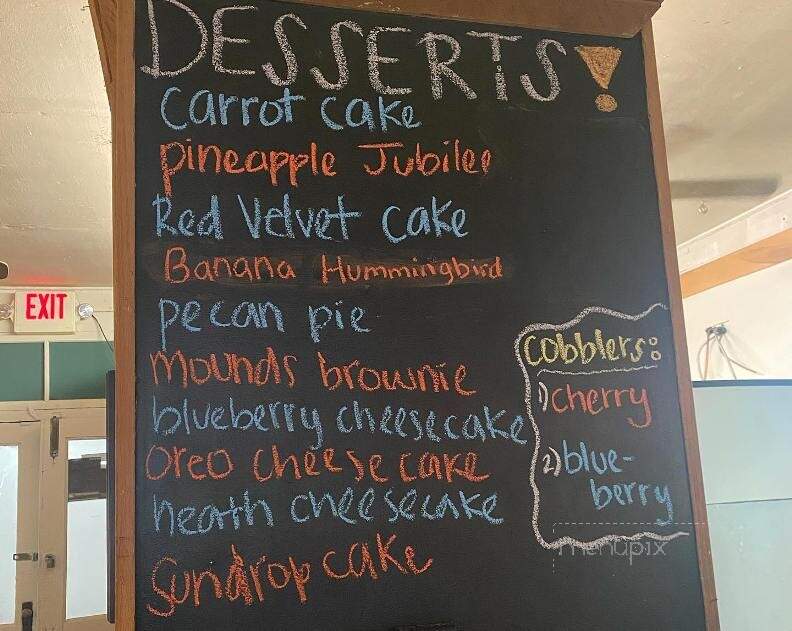 DESSERTS!
Carrot Cake
Pineapple Jubilee
Red Velvet Cake
Banana Hummingbird
pecan pie
EXIT
mounds brownie
blueberry cheesecake
oreo cheesecake
heath cheesecake
Sundrop cake
cobblers:
1) cherry
2) blue-
berry
menupix